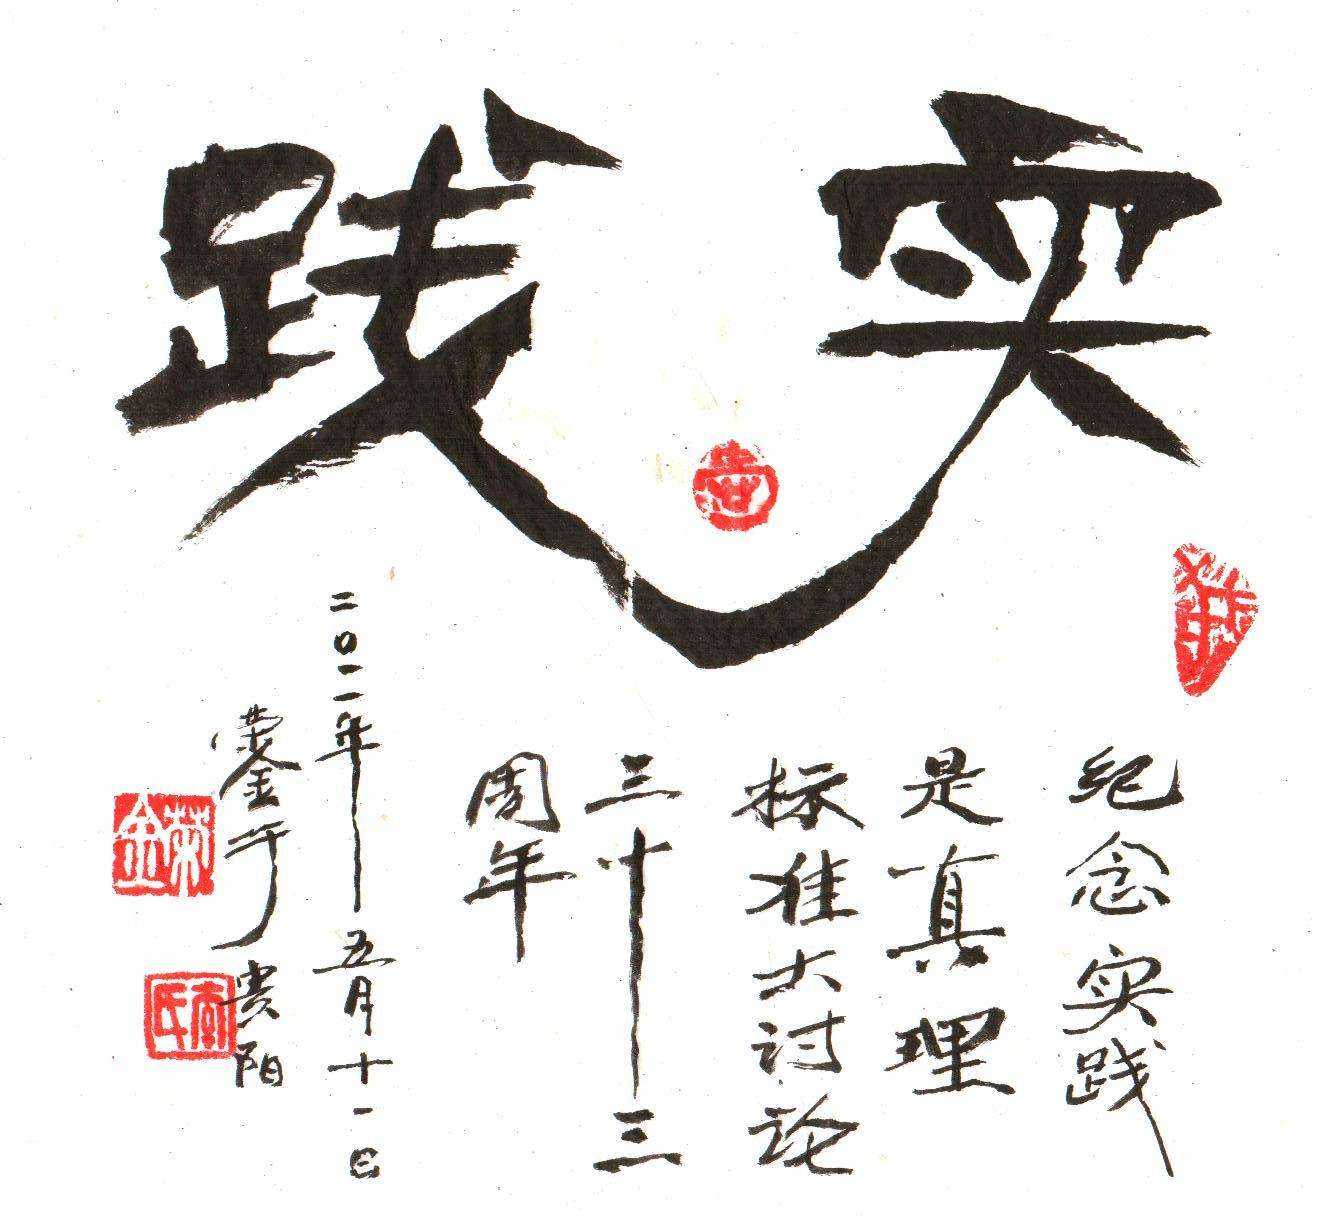 实践
纪念实践
是真理
标准大讨论
三十三
周年
二〇一一年五月十一日
荣金于贵阳
荣金